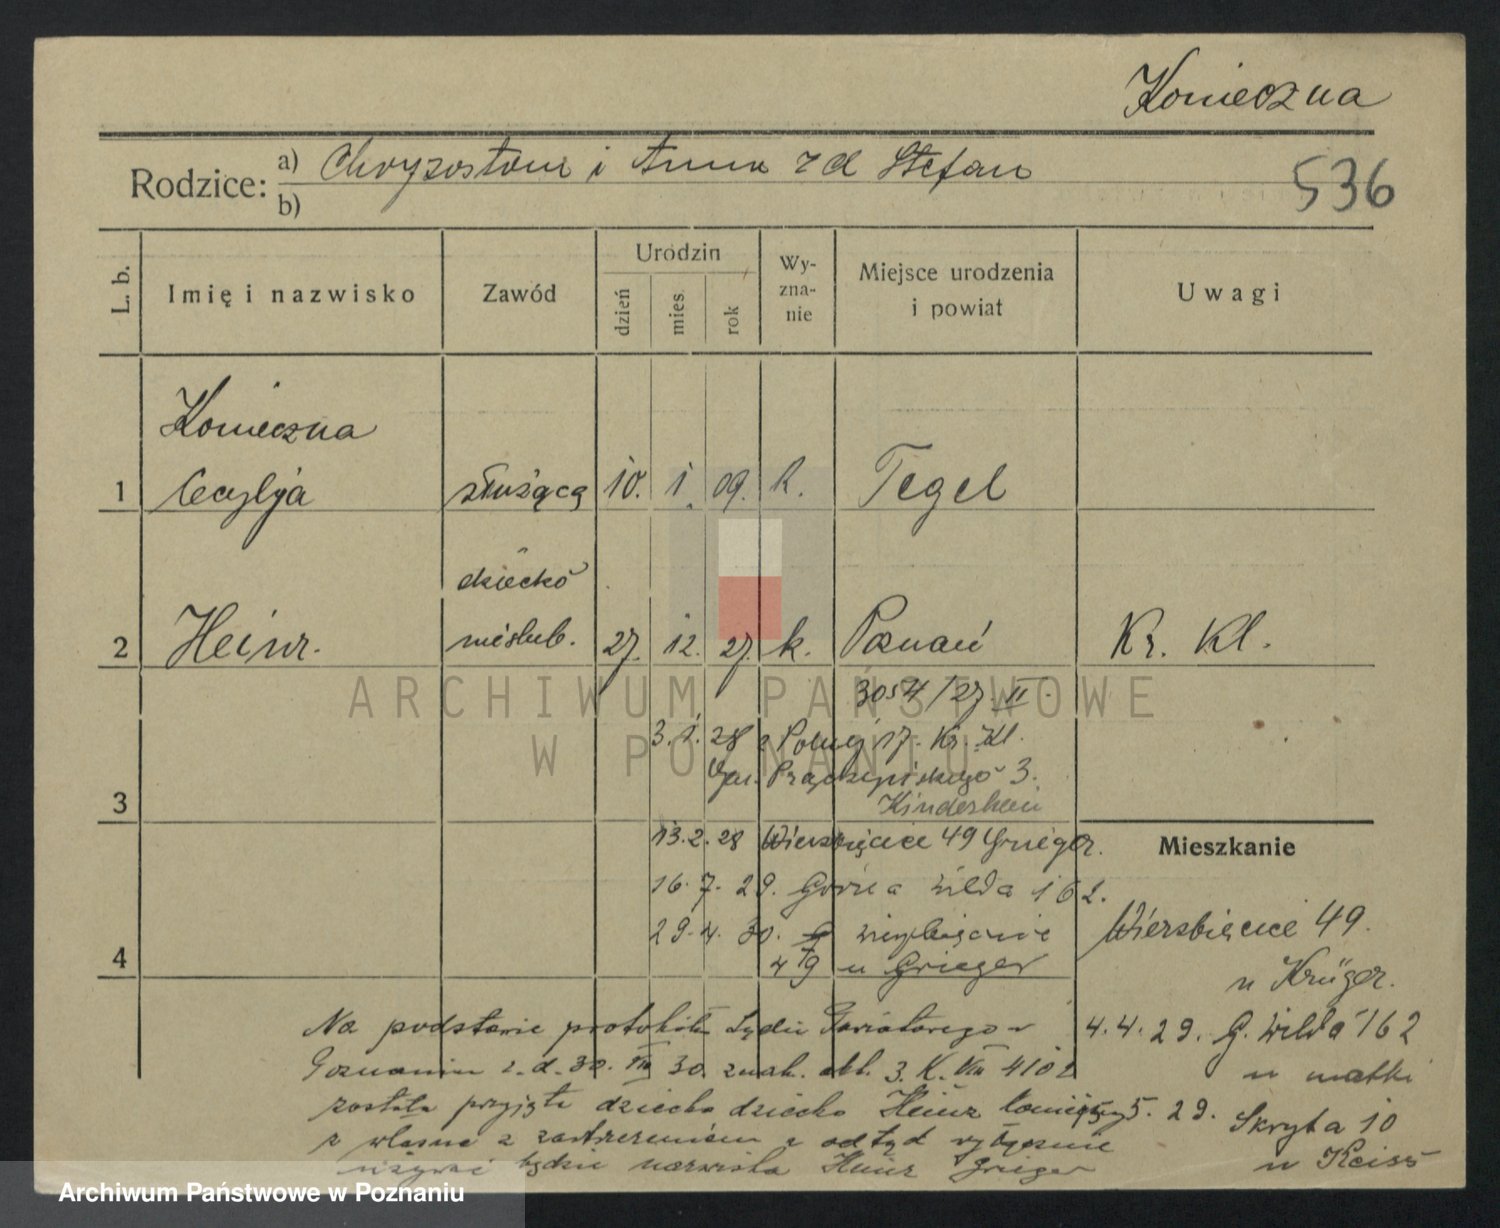 Konieczna
Rodzice: a) Chryzostom i Anna zd Stefan
b)
536
L. b.
Imię i nazwisko
Zawód
Urodzin
dzień
mies.
rok
Wy-
zna-
nie
Miejsce urodzenia
i powiat
Uwagi
Konieczna
1 Cecylja służącą 10. 1. 09. k. Tegel
dziecko
2 Heinr. nieślub. 27. 12. 27. k. Poznań Kr. Kl.
ARCHIWUM PAŃSTWOWE
W POZNANIU
3054/27. II.
3. 1. 28 Polnej 17. Kr. Kl.
Prądzyńskiego 3.
3
Kinderheim
13. 2. 28 Wierzbięcice 49 Grieger.
Mieszkanie
16. 7. 29. Górna Wilda 162.
Wierzbięcice 49.
29. 4. 30. Wierzbięcice
4
49 u Grieger
u Krüger.
Na podstawie protokółu Sądu Powiatowego w
4. 4. 29. G. Wilda 162
Poznaniu z. d. 30. VII 30. znak. akt. 3. K. VIII 410
u matki
została przyjęte dziecko dziecko Heinz
5. 29. Skryta 10
z własne z zastrzeżeniem że odtąd wyłącznie
używać będzie nazwiska Heinz Grieger
u Keiss
Archiwum Państwowe w Poznaniu